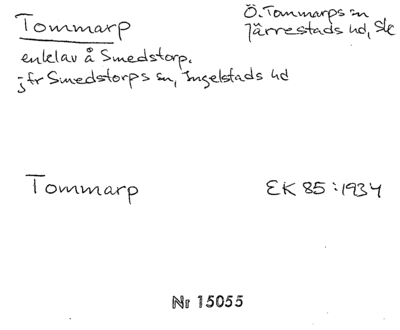 Tommarp
Ö. Tommarps sn
Järrestads hd, Sk
enklav å Smedstorp.
jfr Smedstorps sn, Ingelstads hd
Tommarp
EK 85:1934
Nr 15055